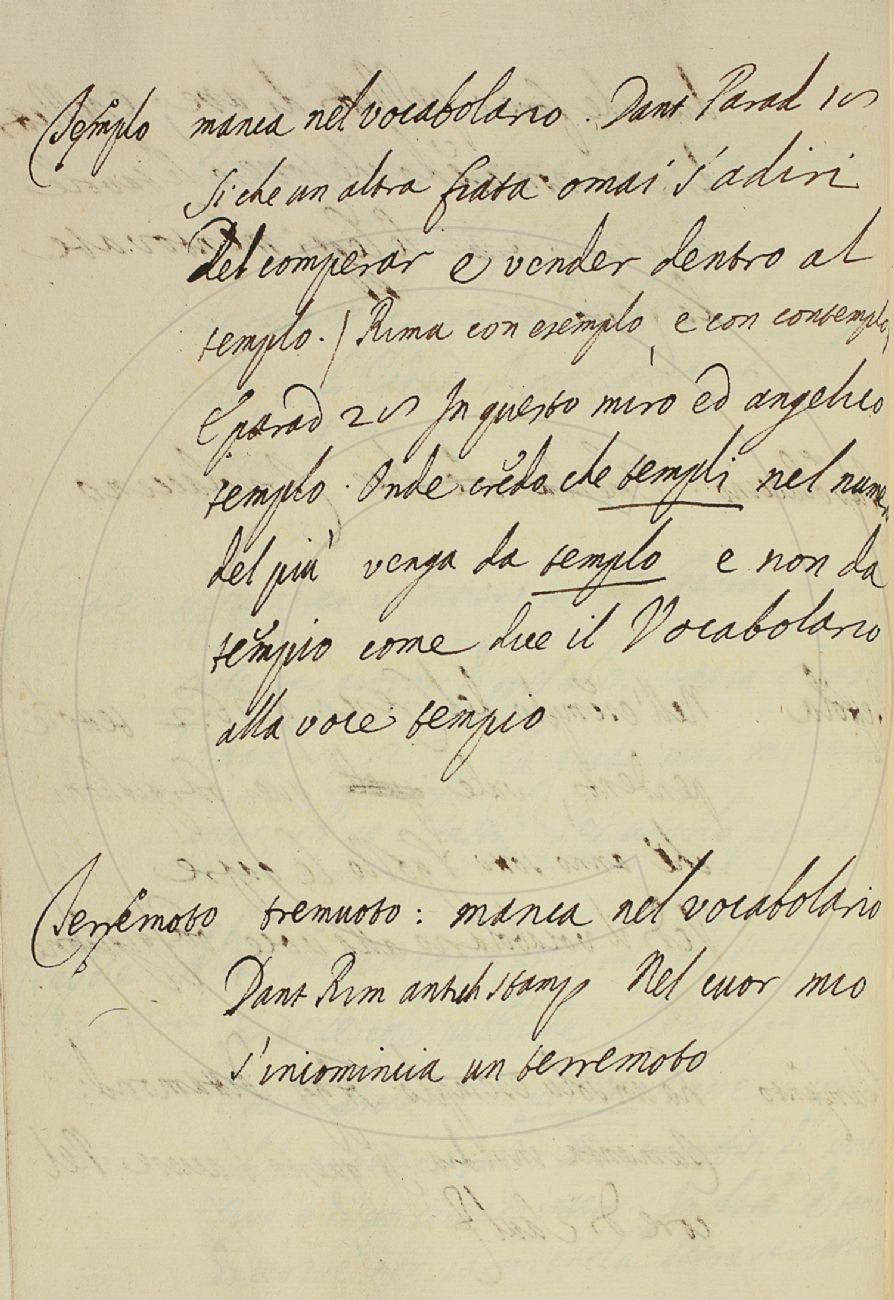 Templo manca nel vocabolario. Dant Parad 18
Si che un altra fiata omai s'adiri
Del comperar e vender dentro al
templo. / Rima con esemplo, e con contemplo,
E parad 28 In questo miro ed angelico
templo. Onde credo che templi nel nume.
del più venga da templo e non da
tempio come dice il Vocabolario
alla voce tempio
Terremoto tremuoto: manca nel vocabolario
Dant Rim antich stamp Nel cuor mio
s'incomincia un terremoto